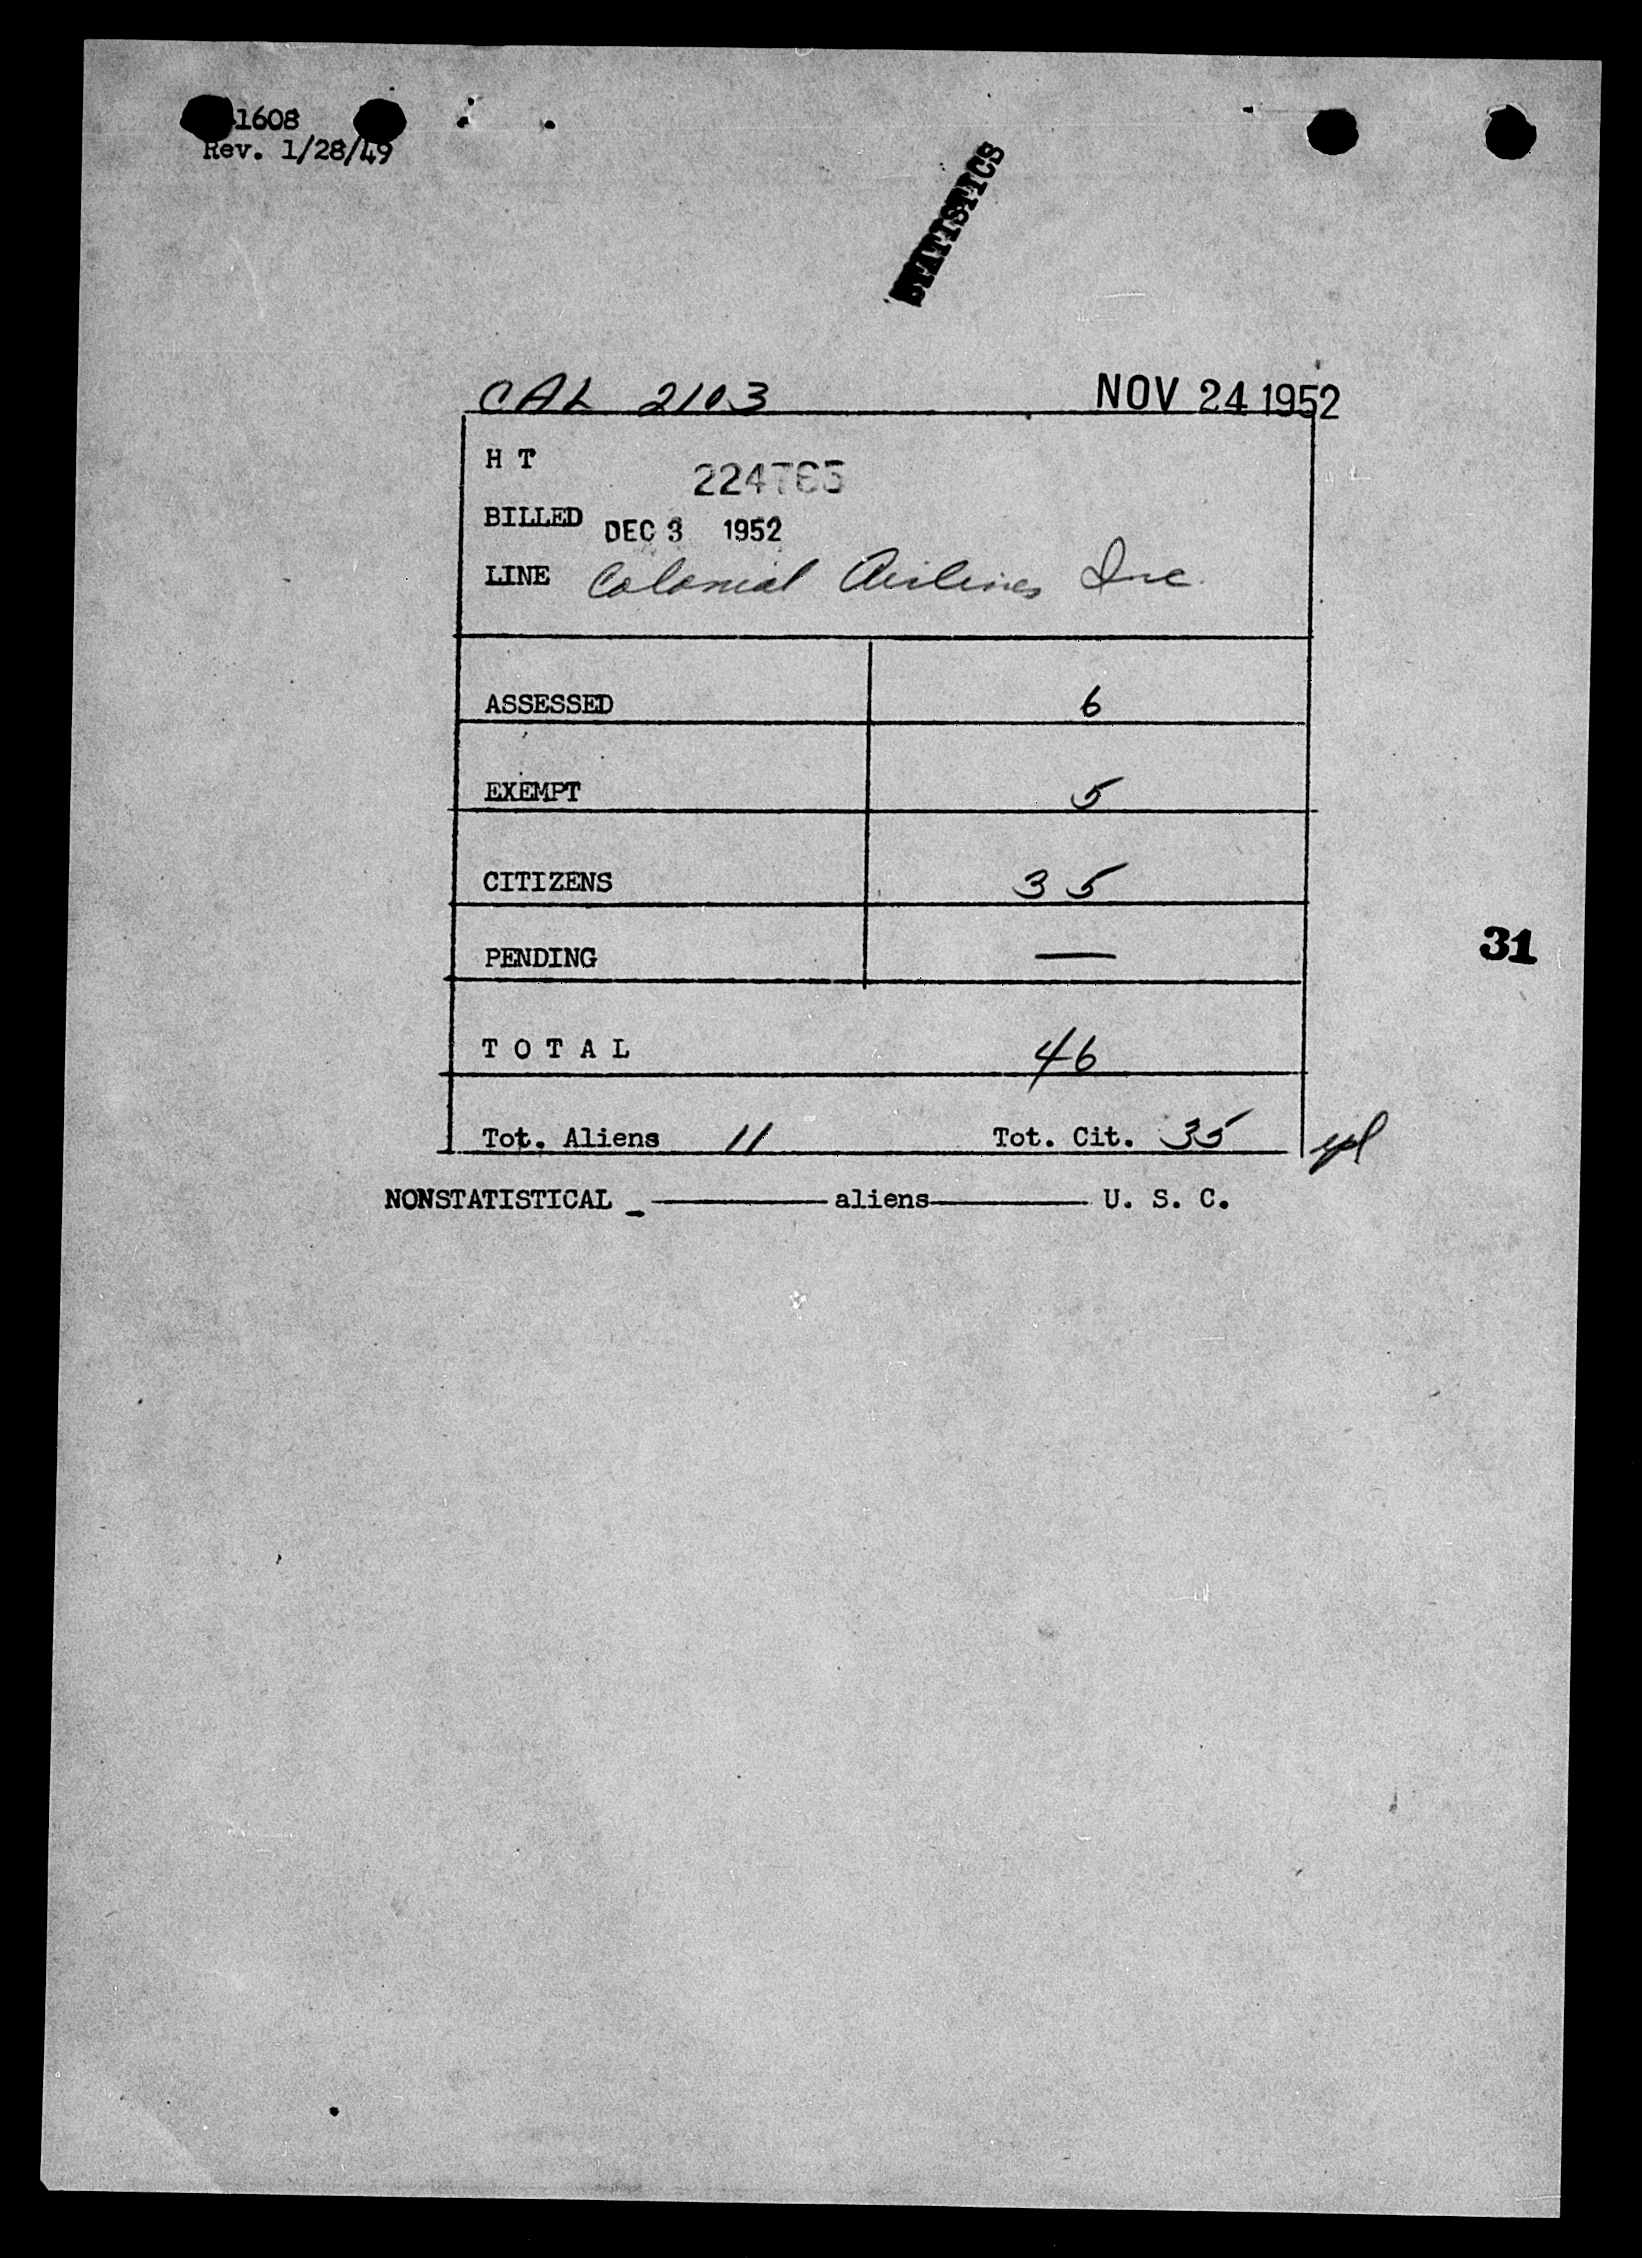 1608
Rev. 1/28/49
STATISTICS
CAL 2103 NOV 24 1952
H T
BILLED DEC 3 1952
LINE Colonial Airlines Inc.
ASSESSED 6
EXEMPT 5
CITIZENS 35
PENDING —
31
T O T A L 46
Tot. Aliens 11 Tot. Cit. 35
NONSTATISTICAL _ aliens U. S. C.